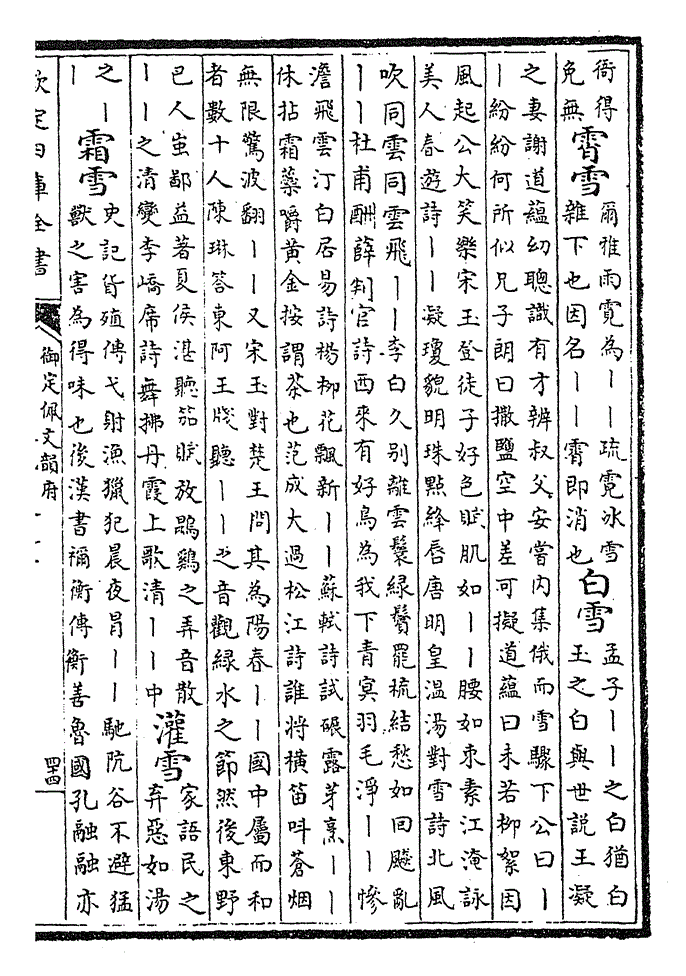 衙得
免無
霄雪
爾雅雨霓為｜｜疏霓冰雪
雜下也因名｜｜霄即消也
白雪
孟子｜｜之白猶白
玉之白與世説王凝
之妻謝道蘊幼聰識有才辨叔父安當内集俄而雪驟下公曰｜
｜紛紛何所似兄子朗曰撒鹽空中差可擬道蘊曰未若柳絮因
風起公大笑樂宋玉登徒子好色賦肌如｜｜腰如束素江淹詠
美人春遊詩｜｜凝瓊貌明珠點絳唇唐明皇温湯對雪詩北風
吹同雲同雲飛｜｜李白久别離雲鬟緑鬢罷梳結愁如回飈亂
｜｜杜甫酬薛判官詩西來有好鳥為我下青冥羽毛淨｜｜慘
澹飛雲汀白居易詩楊柳花飄新｜｜蘇軾詩試碾露芽烹｜｜
休拈霜蘂嚼黄金按謂茶也范成大過松江詩誰將横笛叫蒼烟
無限驚波翻｜｜又宋玉對楚王問其為陽春｜｜國中屬而和
者數十人陳琳答東阿王牋聽｜｜之音觀緑水之節然後東野
巴人蚩鄙益著夏侯湛聽笳賦放鵾鷄之弄音散
｜｜之清變李嶠席詩舞拂丹霞上歌清｜｜中
灌雪
家語民之
弃惡如湯
之｜
｜
霜雪
史記貨殖傳弋射漁獵犯晨夜冒｜｜馳阬谷不避猛
獸之害為得味也後漢書禰衡傳衡善魯國孔融融亦
欽定四庫全書
御定佩文韻府
四十四